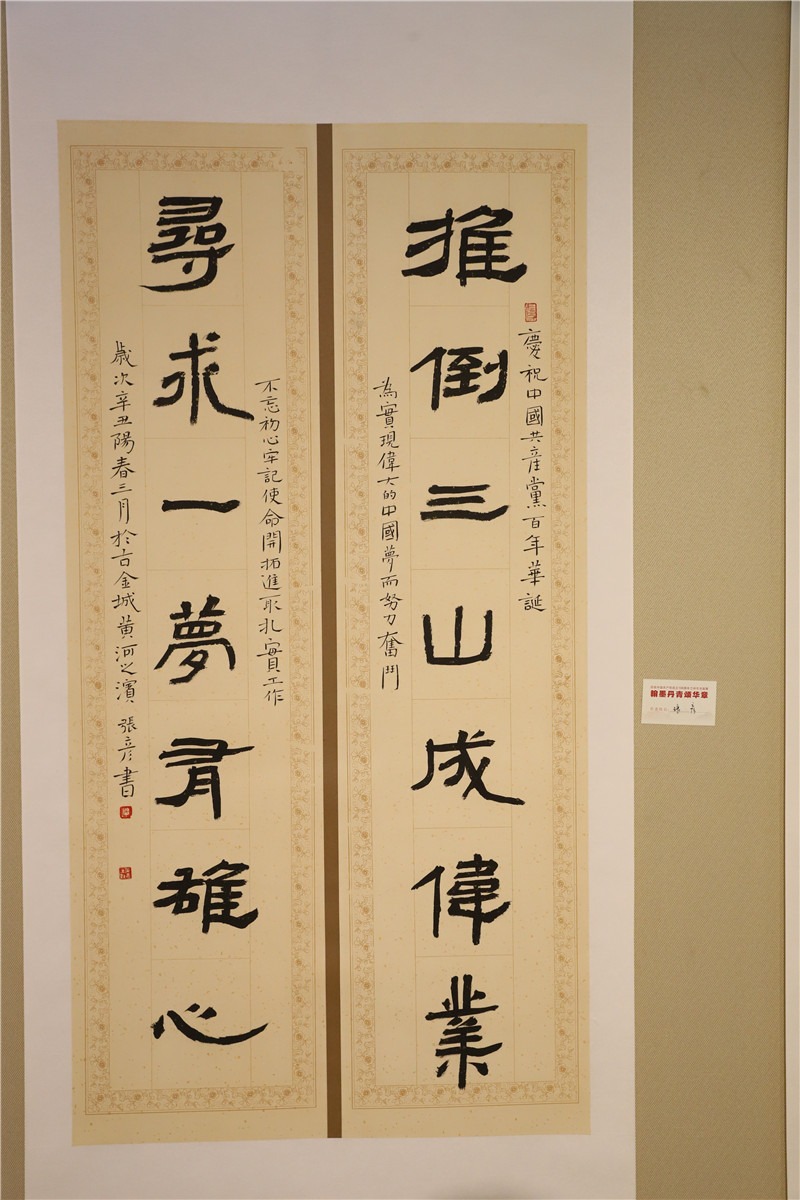 慶祝中國共産黨百年華誕
推倒三山成偉業
為實現偉大的中國夢而努力奮鬥
不忘初心牢記使命開拓進取扎實工作
尋求一夢有雄心
歲次辛丑陽春三月於古金城黃河之濱 張彦書
翰墨丹青頌华章
张彦